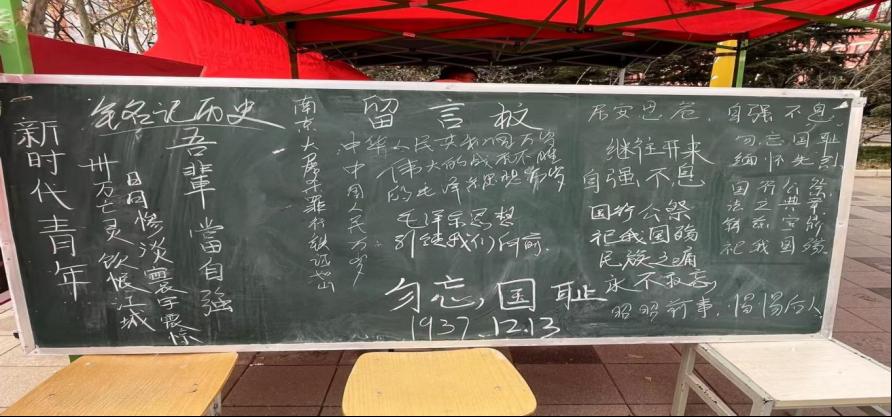 新时代青年
铭记历史
吾輩當自強
卅万亡灵饮恨江城
日月惨淡寰宇震惊
南京大屠杀罪行铁证如山
留言板
中华人民共和国万岁
伟大的战无不胜
的毛泽东思想万岁
中国人民万岁
毛泽东思想
引续我们向前.
勿忘,国耻
1937.12.13
居安思危，自强不息.
继往开来
自强不息
国行公祭
祀我国殇
民族之痛
永不敢忘,
昭昭前事,惕惕后人
勿忘国耻
缅怀先烈
国行公祭
法之典章
铸兹宝鼎
祀我国殇